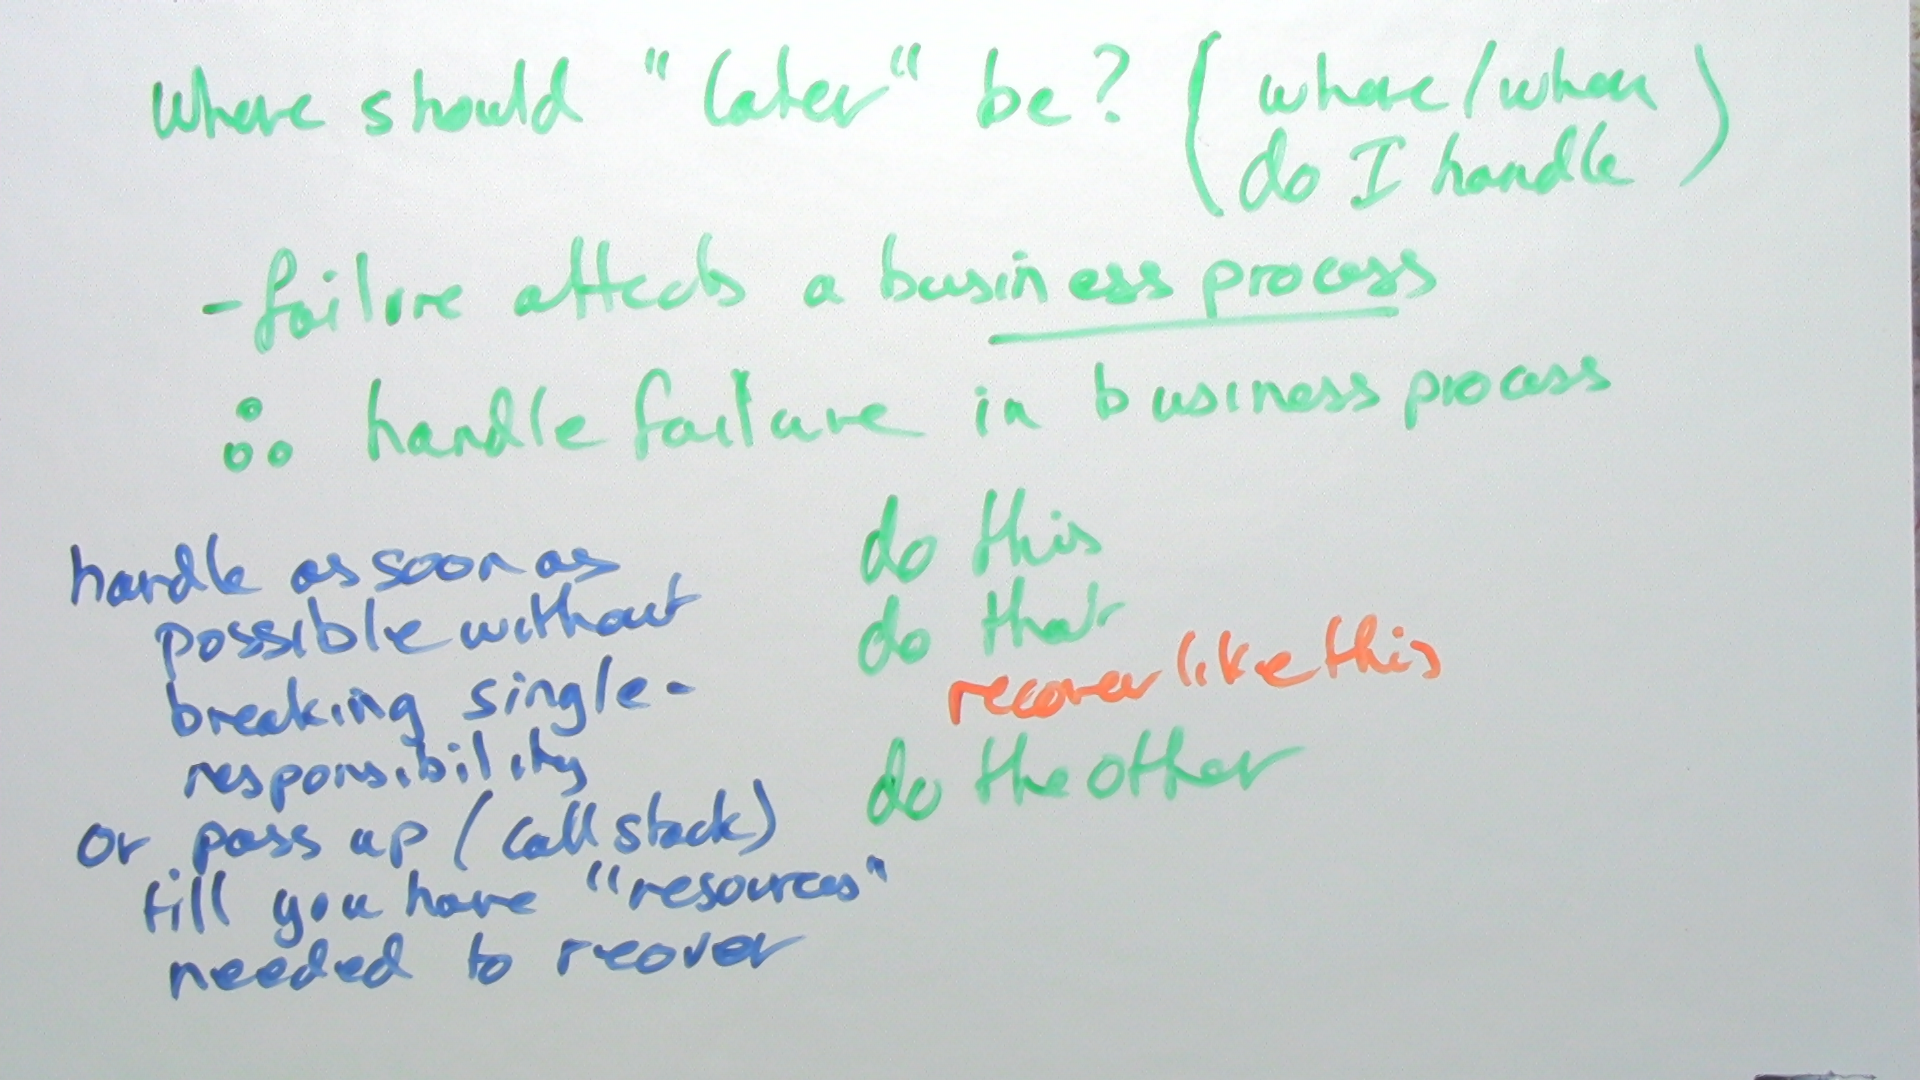 Where should "later" be? (where/when
do I handle)
- failure affects a business process
∴ handle failure in business process
handle as soon as
possible without
breaking single-
responsibility
or pass up (call stack)
till you have "resources"
needed to reover
do this
do that
recover like this
do the other